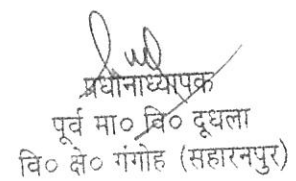 प्रधानाध्यापक
पूर्व मा० वि० दूधला
वि० क्षे० गंगोह (सहारनपुर)